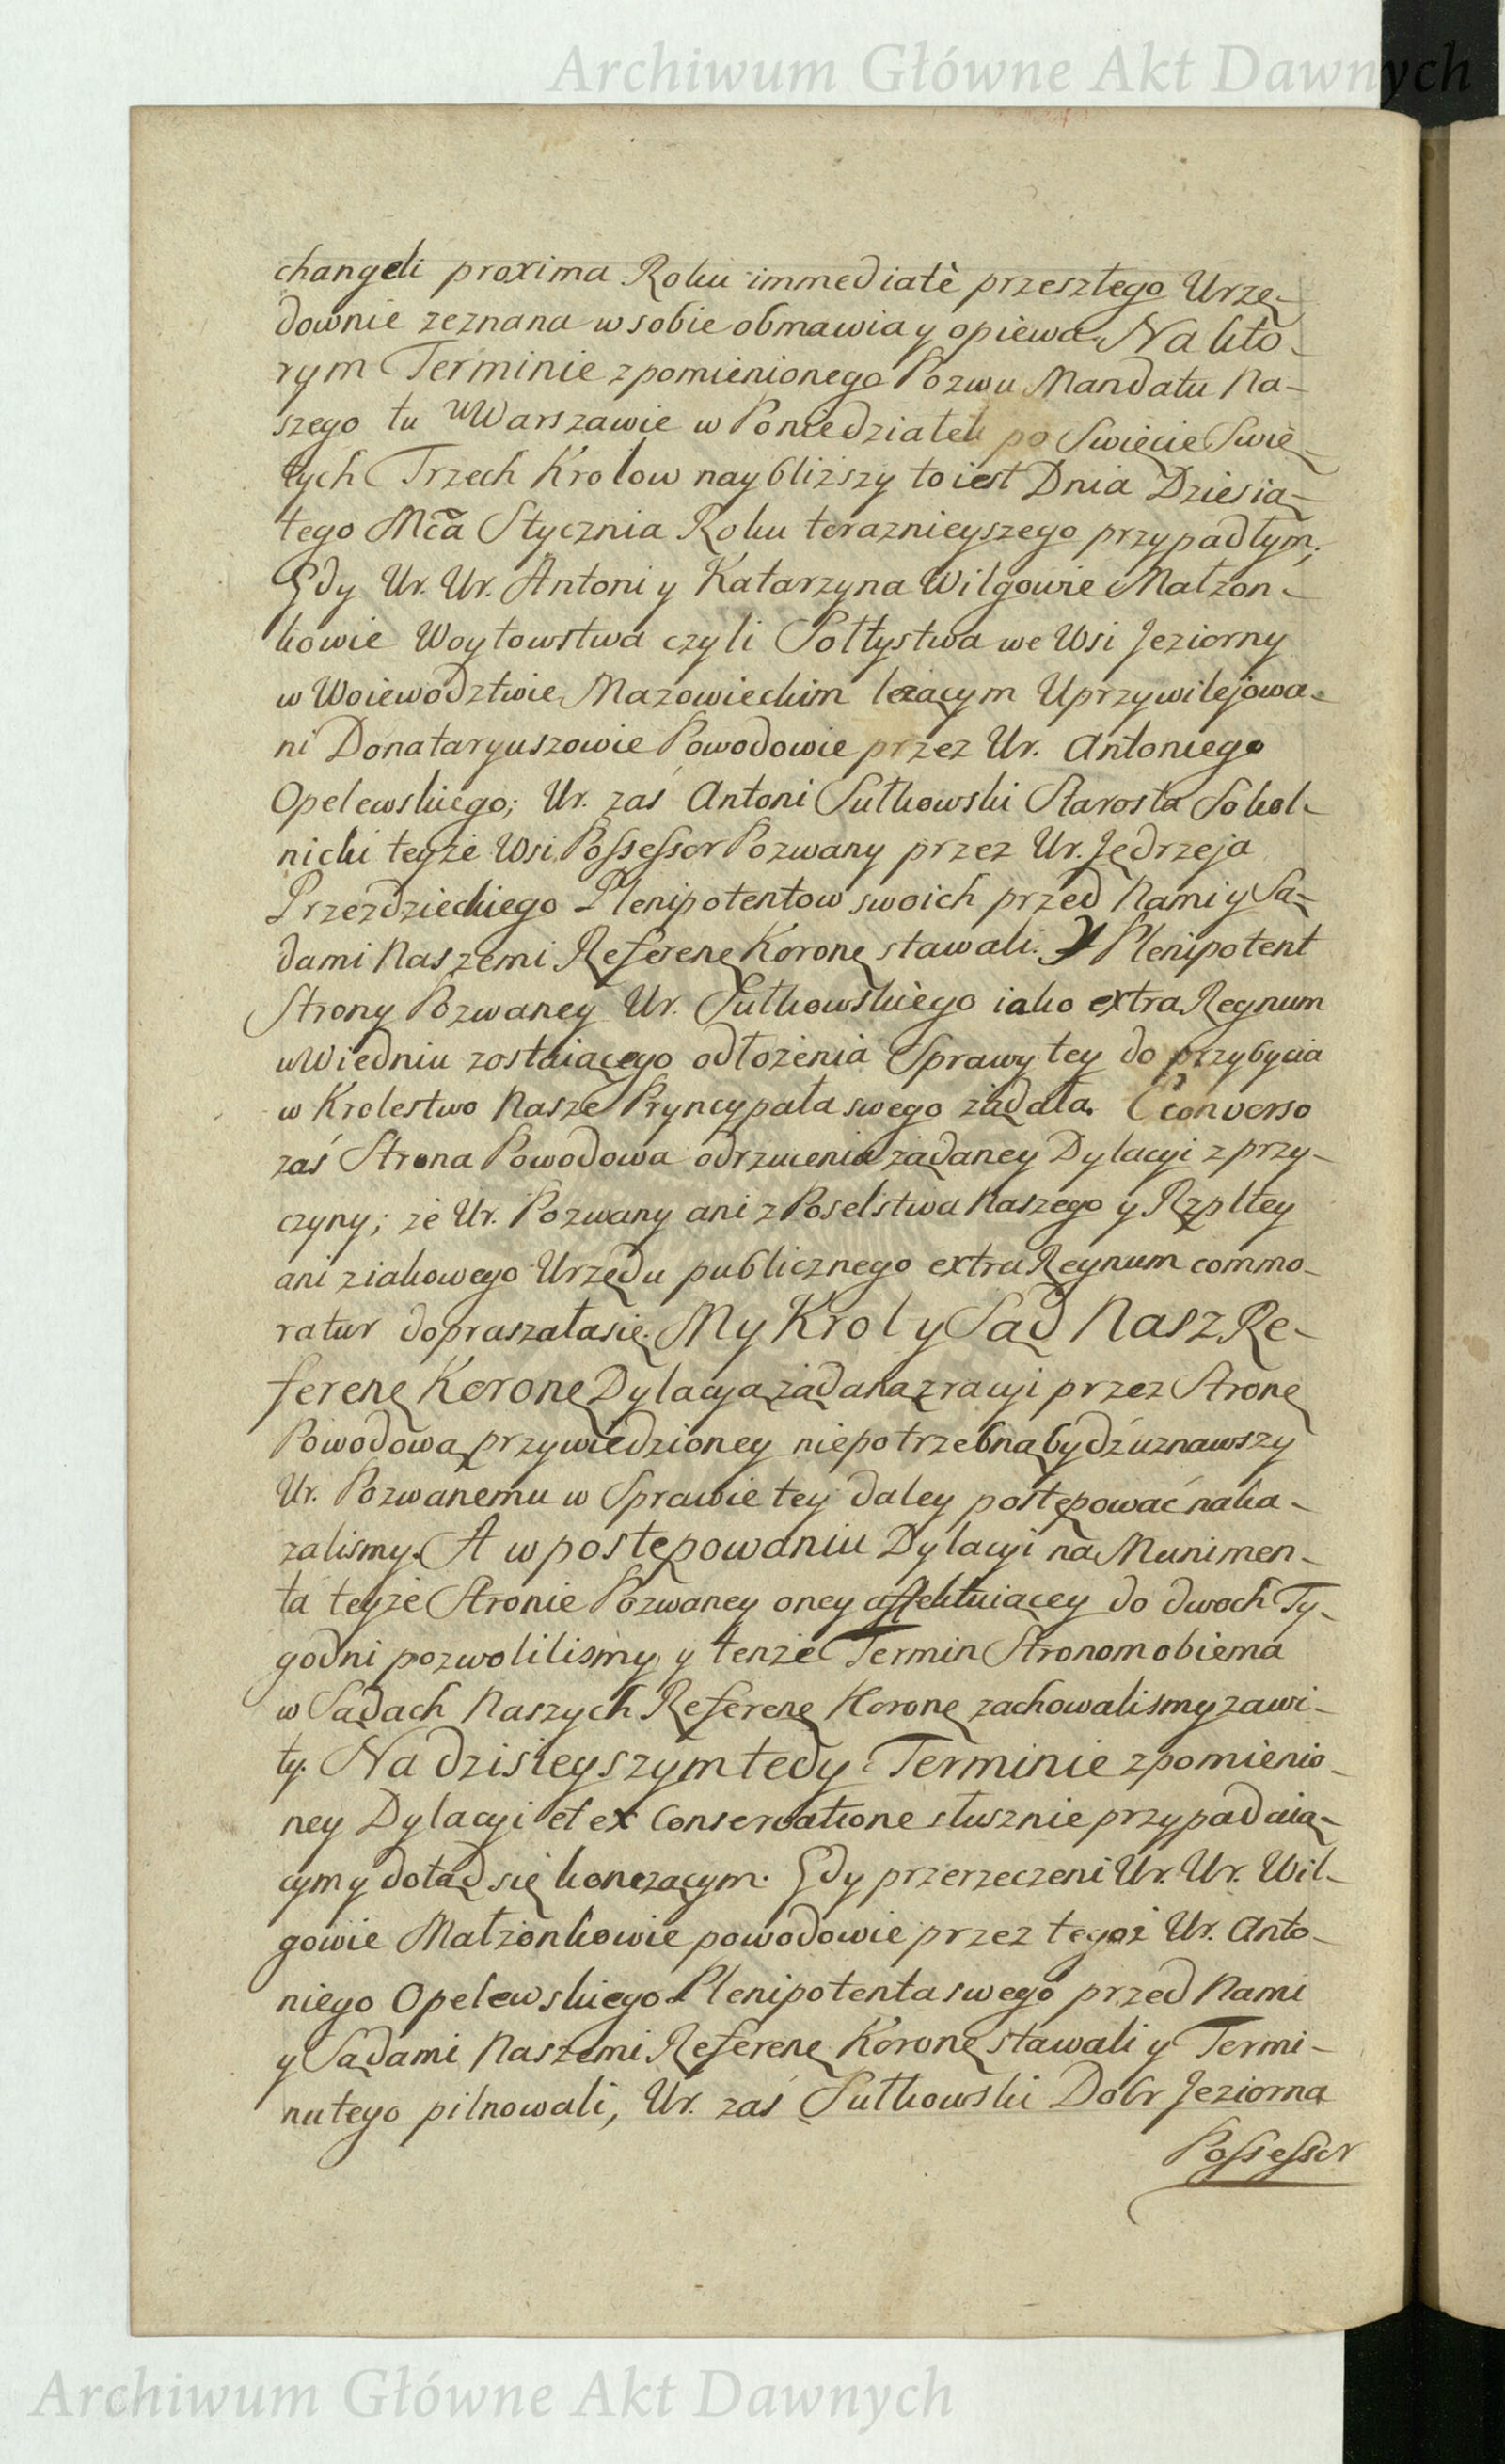 Archiwum Główne Akt Dawnych
changeli proxima Roku immediatè przeszłego Urzę-
downie zeznana w sobie obmawia y opiewa. Na kto-
rym Terminie zpomienionego Pozwu Mandatu Na-
szego tu w Warszawie w Poniedziałek po Swięcie Swię-
tych Trzech Krolow naybliższy to iest Dnia Dziesią-
tego Mca Stycznia Roku teraznieyszego przypadłym;
Gdy Ur. Ur. Antoni y Katarzyna Wilgowie Małżon-
kowie Woytowstwa czyli Sołtystwa we Wsi Jeziorny
w Woiewodztwie Mazowieckim leżącym Uprzywilejowa-
ni Donataryuszowie Powodowie przez Ur. Antoniego
Opelewskiego; Ur. zaś Antoni Sułkowski Starosta Sokol-
nicki teyże Wsi Possessor Pozwany przez Ur. Jędrzeja
Przezdzieckiego Plenipotentow swoich przed Nami y Są-
dami Naszemi Referenę Koronę stawali. Y Plenipotent
Strony Pozwaney Ur. Sułkowskiego iako extra Regnum
w Wiedniu zostaiącego odłożenia Sprawy tey do przybycia
w Krolestwo Nasze Pryncypała swego żądała. E converso
zaś Strona Powodowa odrzucenia żądaney Dylacyi z przy-
czyny; że Ur. Pozwany ani z Poselstwa Naszego y Rzpltey
ani ziakowego Urzędu publicznego extra Regnum commo-
ratur dopraszała się. My Krol y Sąd Nasz Re-
ferenę Koronę Dylacyą żądaną z racyi przez Stronę
Powodową przywiedzioney niepotrzebną bydź uznawszy
Ur. Pozwanemu w Sprawie tey daley postępować naka-
zalismy. A w postępowaniu Dylacyi na Munimen-
ta teyże Stronie Pozwaney oney affektuiącey do dwoch Ty-
godni pozwolilismy y tenże Termin Stronom obiema
w Sądach Naszych Referenę Koronę zachowalismy zawi-
ty. Na dzisieyszym tedy Terminie zpomienio-
ney Dylacyi et ex Conservatione słusznie przypadaią-
cym y dotąd się konczącym. Gdy przerzeczeni Ur. Ur. Wil-
gowie Małżonkowie powodowie przez tegoż Ur. Anto-
niego Opelewskiego Plenipotenta swego przed Nami
y Sądami Naszemi Referenę Koronę stawali y Termi-
nu tego pilnowali, Ur. zaś Sułkowski Dobr Jeziorna
Possessor
Archiwum Główne Akt Dawnych